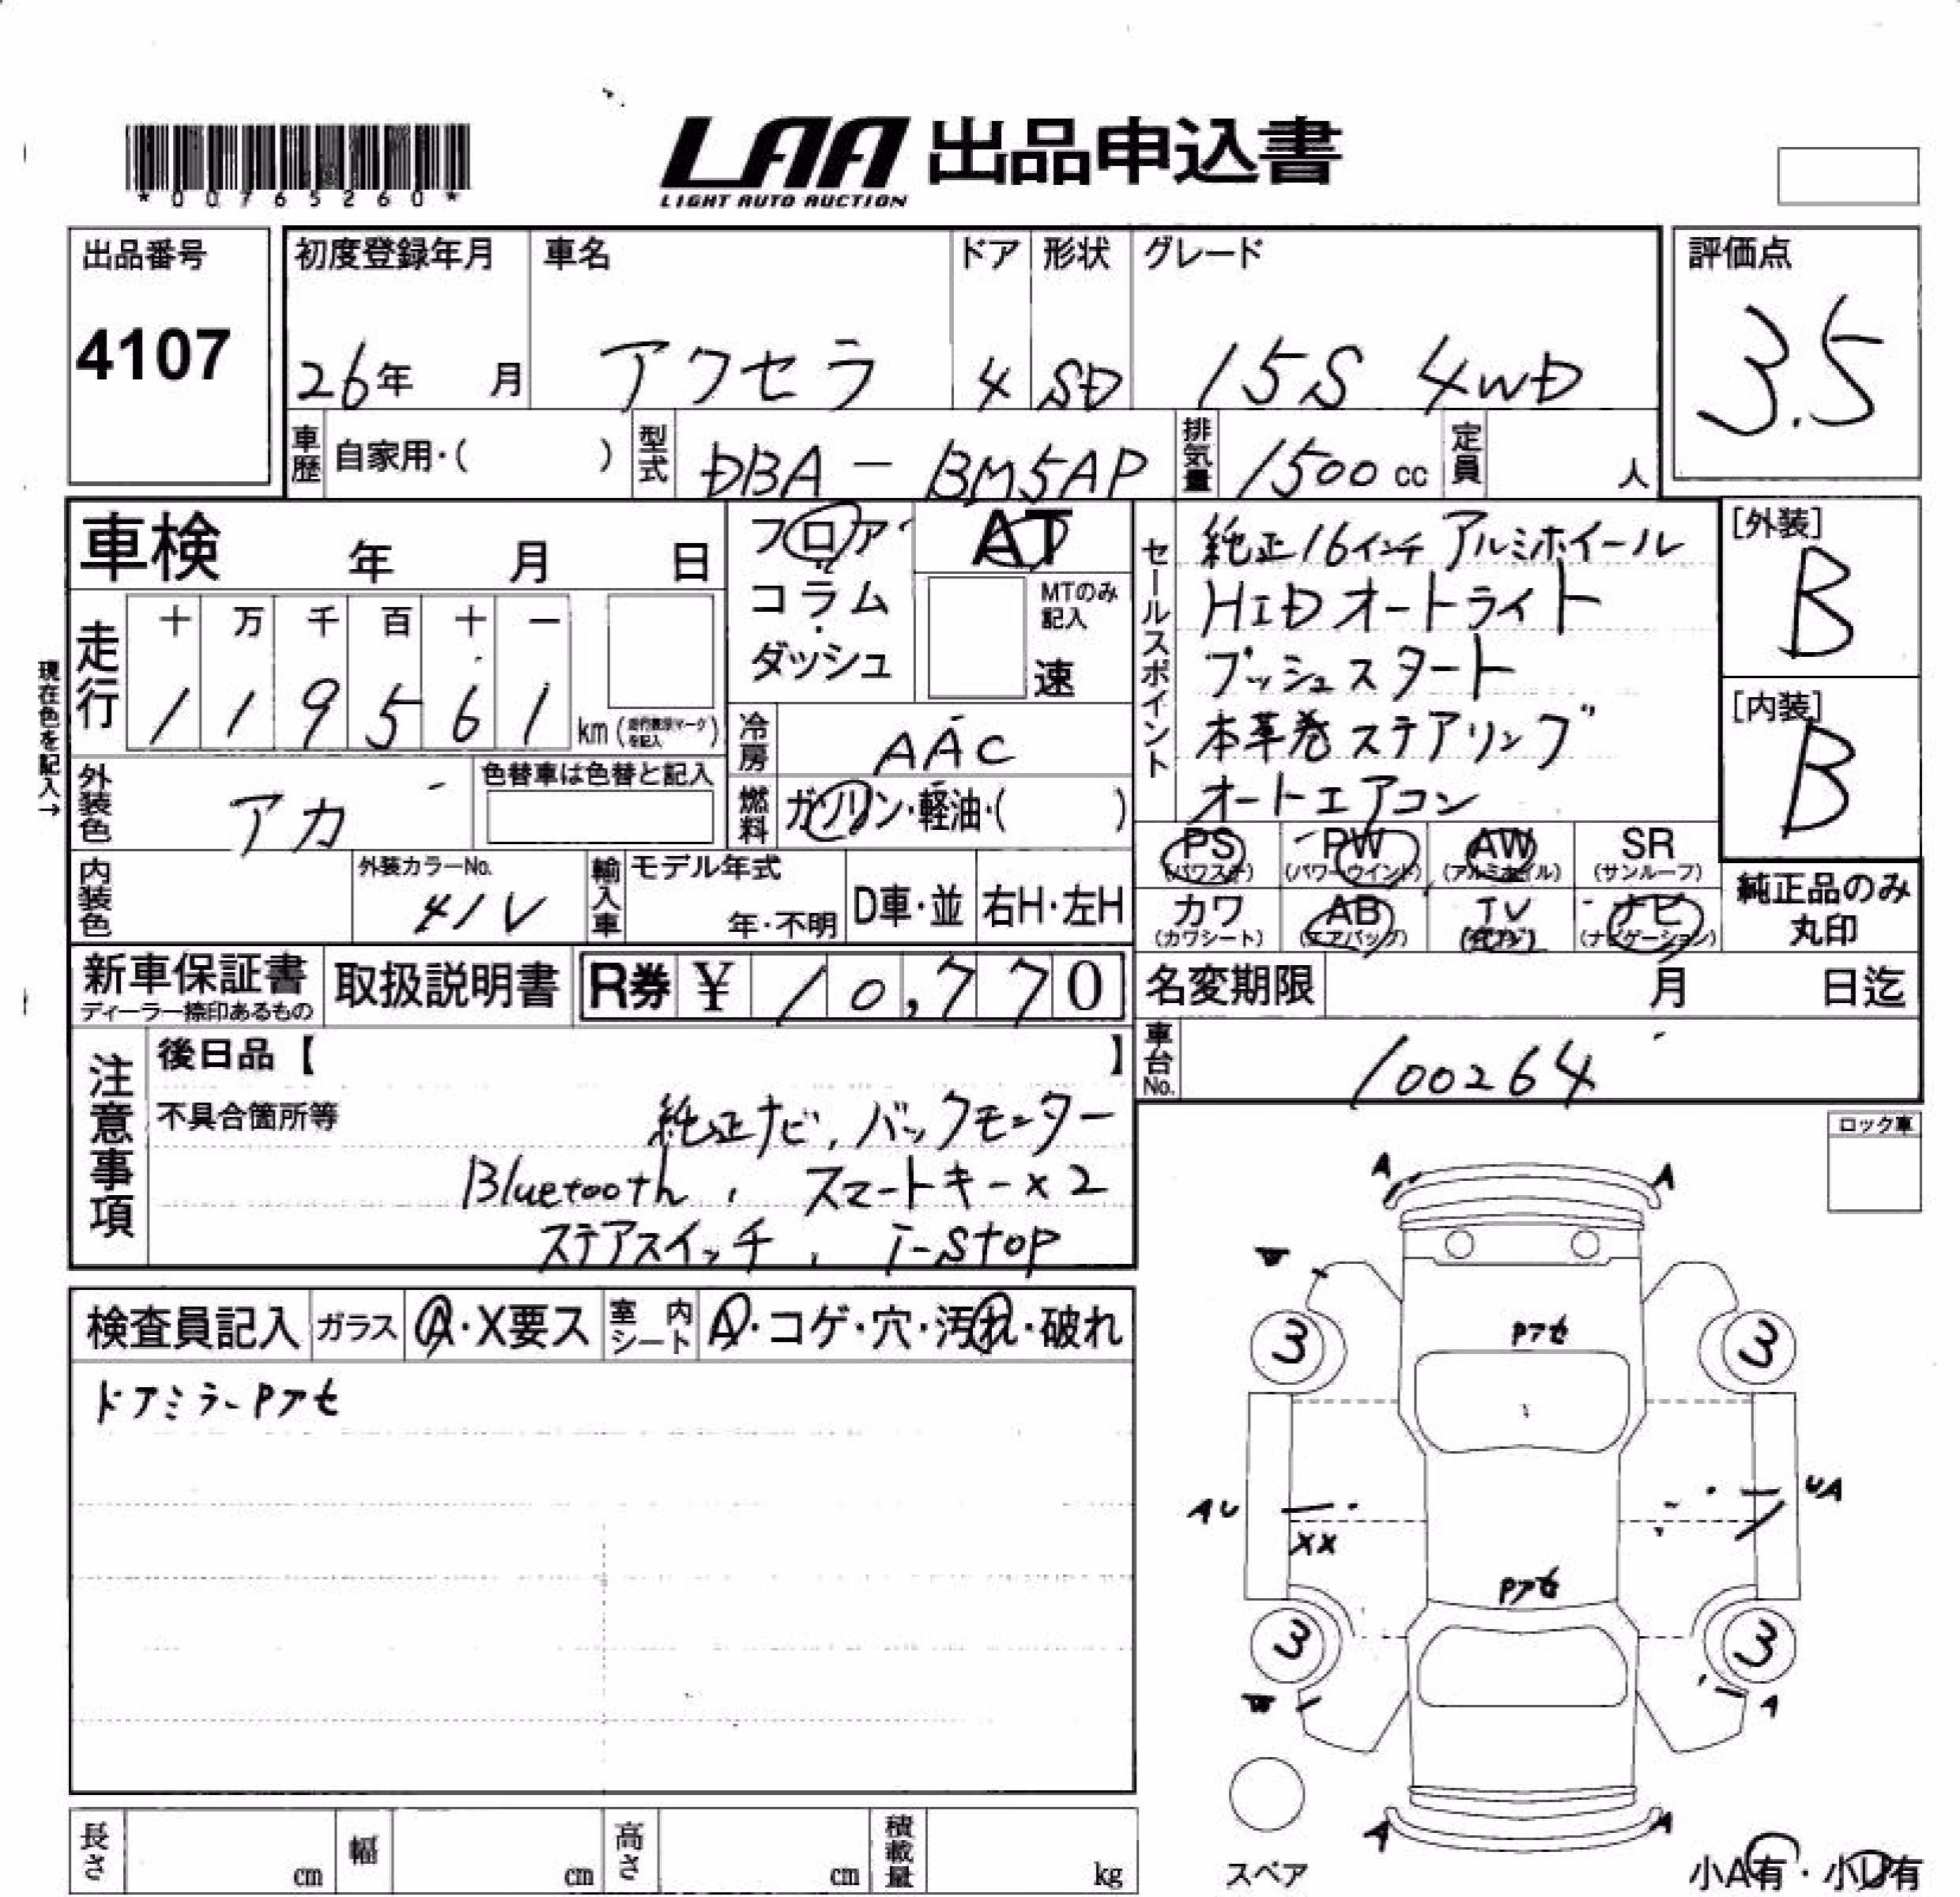 *00765260*
LAA 出品申込書
LIGHT AUTO AUCTION
出品番号
4107
初度登録年月 車名 ドア 形状 グレード
26年 月 アクセラ 4 SD 15S 4WD
評価点
3.5
車歴 自家用・( ) 型式 DBA-BM5AP 排気量 1500cc 定員 人
車検 年 月 日
フロア
コラム
・
ダッシュ
AT
MTのみ
記入
速
現在色を記入→
走行
十 万 千 百 十 一
1 1 9 5 6 1 km
冷房 AAC
外装色 アカ
色替車は色替と記入
燃料 ガソリン・軽油・( )
内装色
外装カラーNo.
41V
輸入車
モデル年式
年・不明
D車・並
右H・左H
セールスポイント
純正16インチ アルミホイール
HID オートライト
プッシュスタート
本革巻ステアリング
オートエアコン
[外装]
B
[内装]
B
PS PW AW SR
(パワステ) (パワーウインド) (アルミホイル) (サンルーフ)
カワ AB TV ナビ
(カワシート) (エアバッグ) (ナビゲーション)
純正品のみ
丸印
新車保証書
ディーラー捺印あるもの
取扱説明書
R券 ¥ 10,770
名変期限 月 日迄
車台No. 100264
注意事項
後日品【 】
不具合箇所等
純正ナビ, バックモニター
Bluetooth, スマートキー×2
ステアスイッチ, i-stop
検査員記入 ガラス A・X要ス 室内シート A・コゲ・穴・汚れ・破れ
ドアミラーPアセ
ロック車
A A
W
Pアセ
3 3
AU UA
XX
Pアセ
3 3
W A
A A
スペア
小A有・小U有
長さ cm 幅 cm 高さ cm 積載量 kg